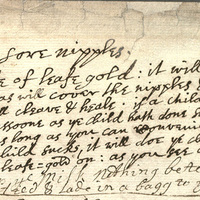 sore nipples.
e of leafe gold: it will
as will cover the nipples &
ll cleave & heale: if a child
ssoone as ye child hath done s
as long as you can convenie
child sucks, it will doe ye ch
leafe gold on: as you see c
nothing bett
& lade in a bagg